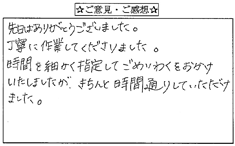 ☆ご意見・ご感想☆
先日はありがとうございました。
丁寧に作業してくださりました。
時間を細かく指定してごめいわくをおかけ
いたしましたが、きちんと時間通りしていただけ
ました。